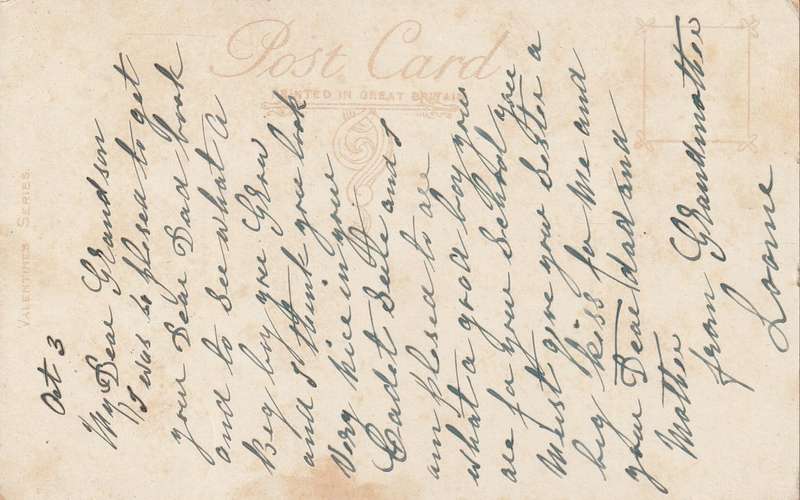 Post Card
PRINTED IN GREAT BRITAIN
VALENTINES SERIES.
Oct 3
My Dear Grandson
I was so plesed to get
your Dear Dad book
and to see what a
Beg boy you Grow
and I think you look
very nice in your
Cadet Seute and I
am plesed to are
what a good boy you
are for your School you
Must give your Sester a
beg kiss for Me and
your Dear dad and
Mother
from Grandmother